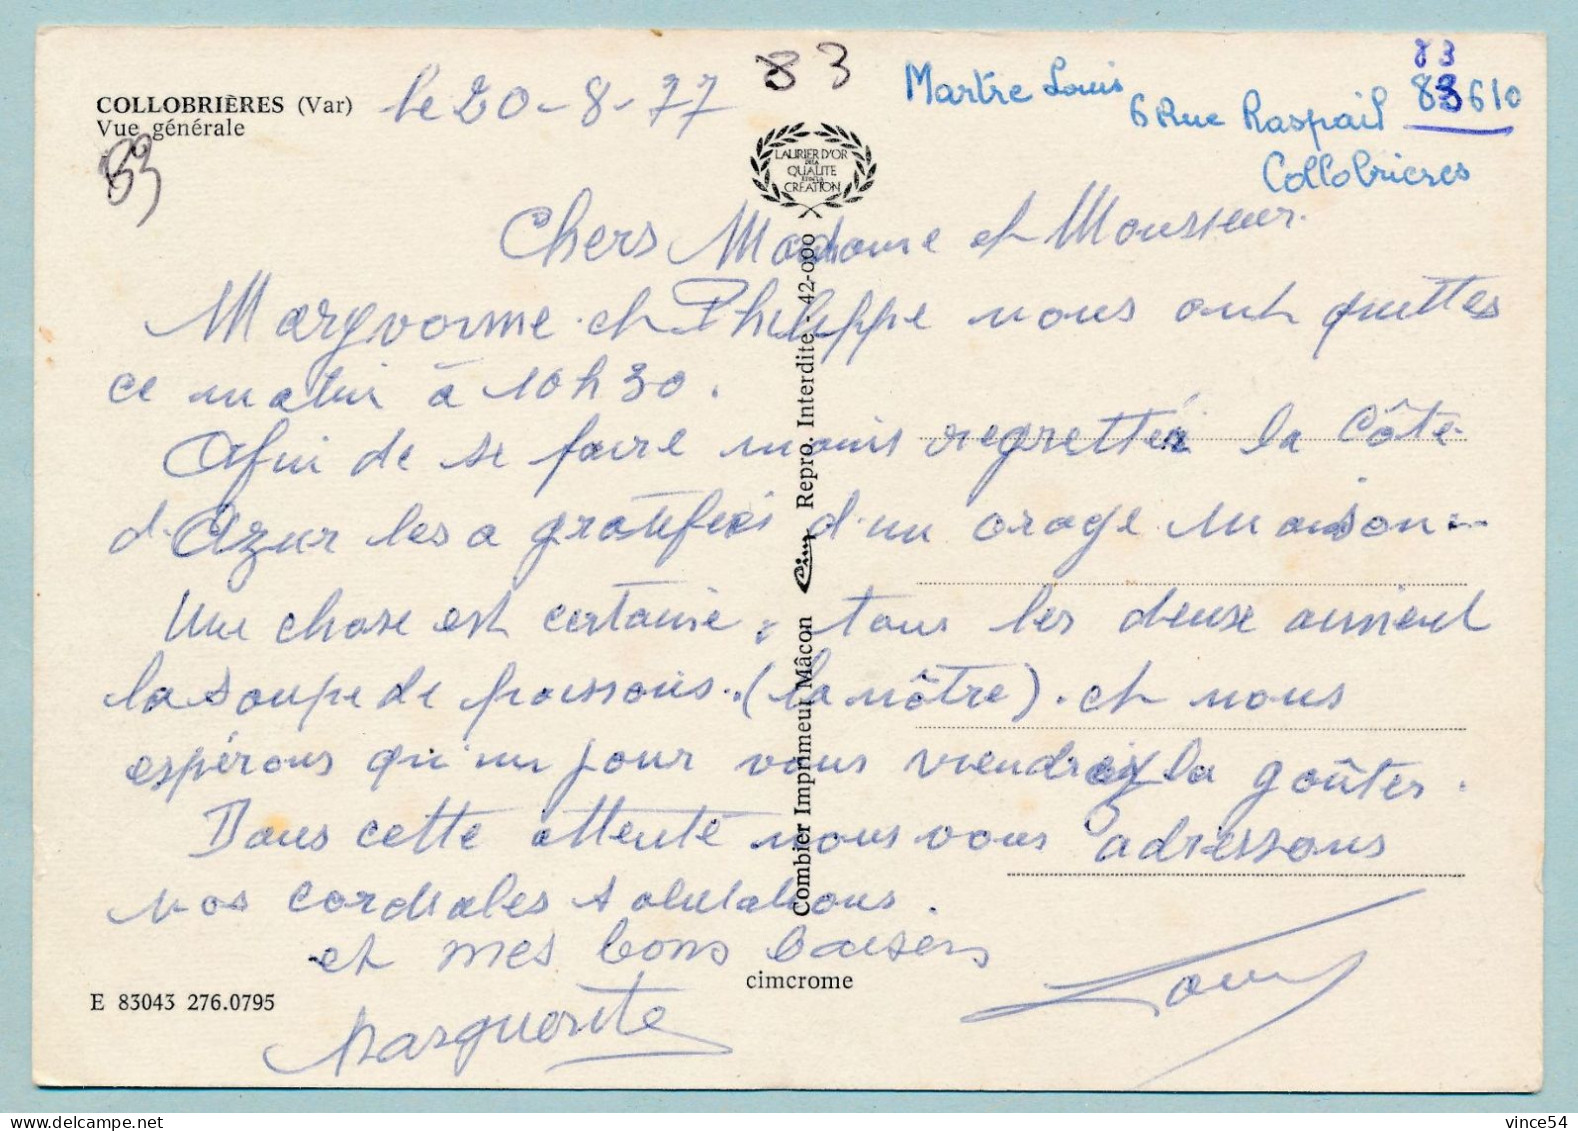 COLLOBRIÈRES (Var)
Vue générale
83
le 20-8-77
83
Martre Louis
6 Rue Raspail
83
83610
Collobrieres
LAURIER D'OR
DE LA
QUALITE
ET DE LA
CREATION
Chers Madame et Monsieur.
Maryvonne et Philippe nous ont quittés
ce matin à 10h30.
Afin de se faire moins regretter la Côte
d'Azur les a gratifiés d'un orage maison..
Une chose est certaine, tous les deux aiment
la soupe de poissons. (la nôtre). et nous
espérons qu'un jour vous viendrez la goûter.
Dans cette attente nous vous adressons
nos cordiales salutations.
et mes bons baisers
Marguerite
Louis
Combier Imprimeur Mâcon Cim Repro. Interdite - 42-000
cimcrome
E 83043 276.0795
vince54